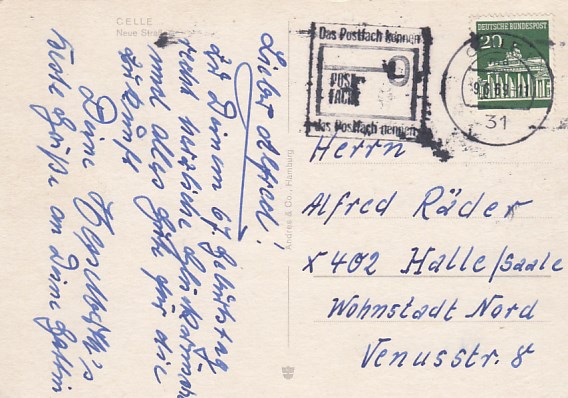 CELLE
Neue Straße
Lieber Alfred!
Zu Deinem 67. Geburtstag
recht herzliche Glückwünsche
und alles Gute für die
Zukunft
Deine
viele Grüße an Deine
Andres & Co., Hamburg
Das Postfach kennen
POST
FACH
das Postfach nennen
DEUTSCHE BUNDESPOST
20
31
Herrn
Alfred Räder
X 402 Halle/Saale
Wohnstadt Nord
Venusstr. 8